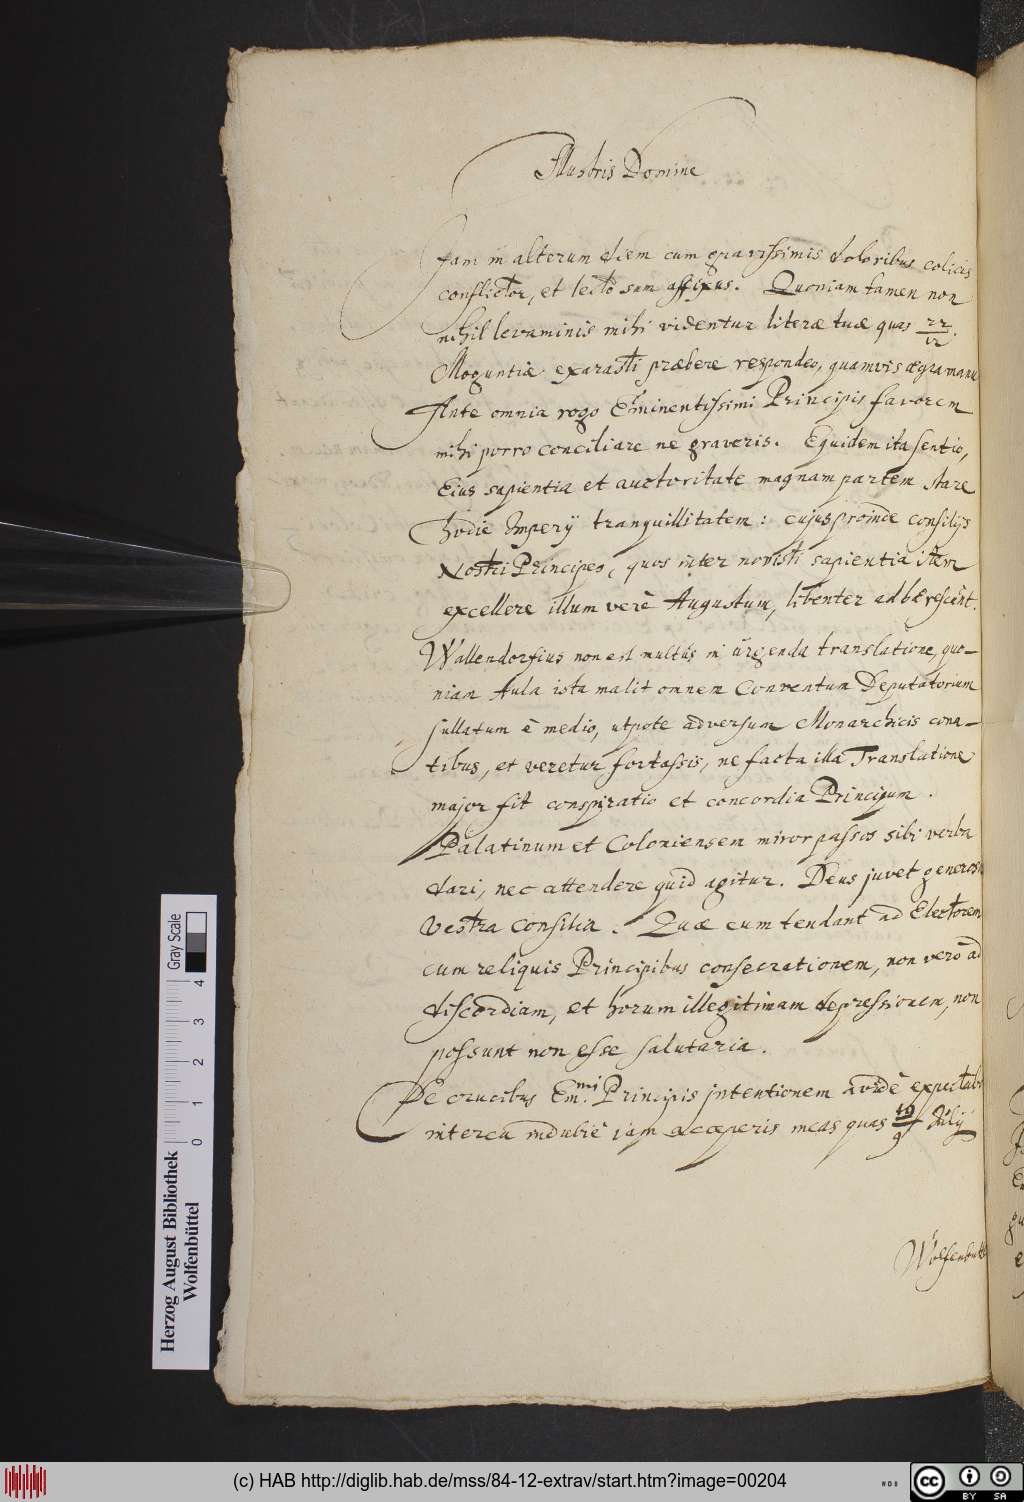 Illustris Domine
Jam in alterum diem cum gravissimis doloribus colicis
conflictor, et lecto sum affixus. Quoniam tamen non
nihil levaminis mihi videntur literæ tuæ quas 22/12.
Moguntiæ exarasti præbere respondeo, quamvis ægra manu
Ante omnia rogo Eminentissimi Principis favorem
mihi porro conciliare ne graveris. Equidem ita sentio,
Eius sapientia et auctoritate magnam partem stare
hodie Imperij tranquillitatem: cujus proinde consilijs
Nostri Principes, quos inter novisti sapientia item
excellere illum verè Augustum, libenter adhærescent.
Wallendorfius non est multus in urgenda translatione, quo-
niam Aula ista malit omnem Conventum Deputatorium
sullatum è medio, utpote adversum Monarchicis cona-
tibus, et veretur fortassis, ne facta illa Translatione
major fit conspiratio et concordia Principum.
Palatinum et Coloniensem miror passos sibi verba
dari, nec attendere quid agitur. Deus juvet generosa
Vestra Consilia. Quæ cum tendant ad Electorem
cum reliquis Principibus consecrationem, non verò ad
discordiam, et horum illegitimam depressionem, non
possunt non esse salutaria.
De crucibus Em.mi Principis intentionem avidè expectabo
interea indubiè jam acceperis meas quas 19/9 Julij
Wolfenbutt
Herzog August Bibliothek
Wolfenbüttel
0 1 2 3 4
Gray Scale
(c) HAB http://diglib.hab.de/mss/84-12-extrav/start.htm?image=00204
cc BY SA